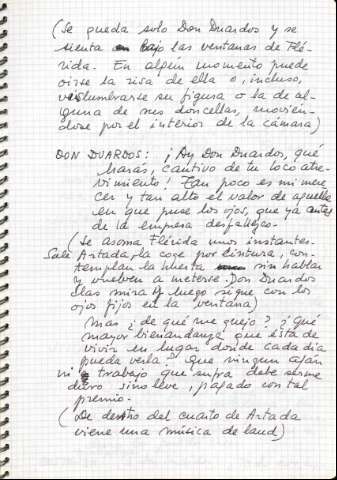 (Se queda solo Don Duardos y se
sienta bajo las ventanas de Flé-
rida. En algún momento puede
oírse la risa de ella o, incluso,
vislumbrarse su figura o la de al-
guna de sus doncellas, movién-
dose por el interior de la cámara)
DON DUARDOS: ¡Ay Don Duardos, qué
harás, cautivo de tu loco atre-
vimiento! Tan poco es mi mere
cer y tan alto el valor de aquella
en que puse los ojos, que ya antes
de la empresa desfallezco.
(Se asoma Flérida unos instantes.
Sale Artada, la coge por cintura, con-
templan la huerta sin hablar
y vuelven a meterse. Don Duardos
las mira y luego sigue con los
ojos fijos en la ventana)
Mas ¿de qué me quejo? ¿Qué
mayor bienandanza que está de
vivir en lugar donde cada día
pueda verla? Que ningún afán
ni trabajo que sufra debe serme
duro sino leve, pagado con tal
premio.
(De dentro del cuarto de Artada
viene una música de laud)